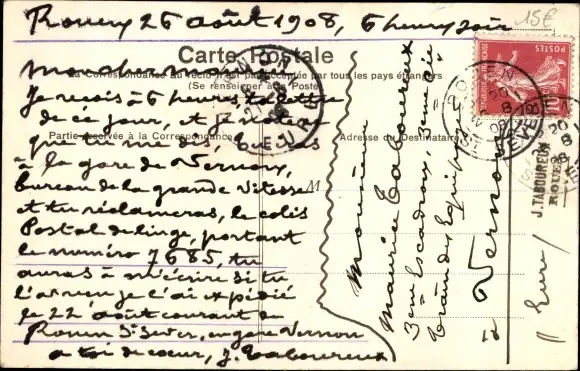 Rouen, 26 août 1908, 6 heures soir
15€
Carte Postale
La Correspondance au recto n'est pas acceptée par tous les pays étrangers
(Se renseigner à la Poste)
Partie réservée à la Correspondance
Adresse du Destinataire
Mon cher
Je reçois à 6 heures ta lettre
de ce jour, et je
que tu me dis, tu iras
à la gare de Vernon,
bureau de la grande Vitesse
et tu réclameras, le colis
Postal de linge, portant
le numéro 7685, tu
auras à m'écrire si tu
l'as reçu je l'ai expédié
le 22 août courant de
Rouen St Sever, en gare Vernon
à toi de cœur, J. Taboureux
M
Monsieur
Maurice Taboureux
3eme Escadron, 3eme Cie
Train des Equipages
à Vernon
Eure
POSTES
10
VERNON
EURE
J. TABOUREUX
ROUEN